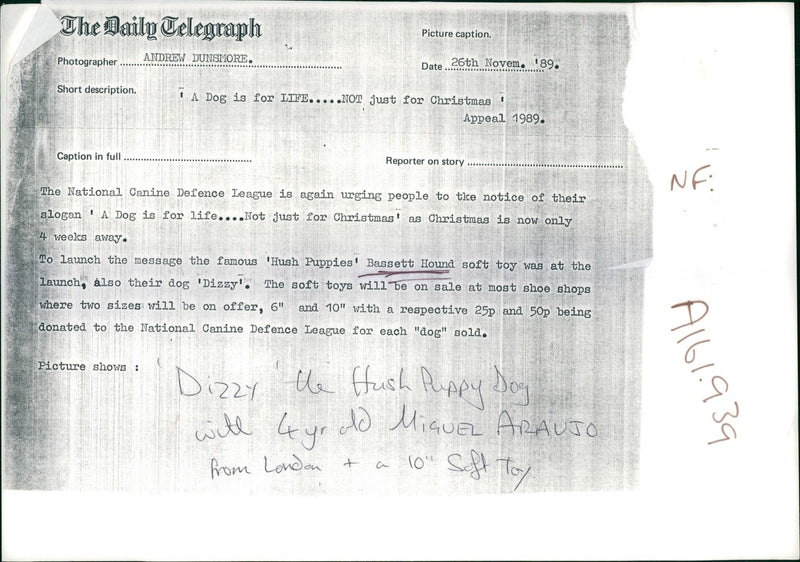 The Daily Telegraph
Picture caption.
Photographer ANDREW DUNSMORE.
Date 26th Novem. '89.
Short description.
' A Dog is for LIFE.....NOT just for Christmas '
Appeal 1989.
Caption in full
Reporter on story
The National Canine Defence League is again urging people to tke notice of their
slogan ' A Dog is for life....Not just for Christmas' as Christmas is now only
4 weeks away.
To launch the message the famous 'Hush Puppies' Bassett Hound soft toy was at the
launch, also their dog 'Dizzy'. The soft toys will be on sale at most shoe shops
where two sizes will be on offer, 6" and 10" with a respective 25p and 50p being
donated to the National Canine Defence League for each "dog" sold.
Picture shows :
' Dizzy ' the Hush Puppy Dog
with 4 yr old MIGUEL ARAUJO
from London + a 10" Soft Toy
NF:
A1161.939